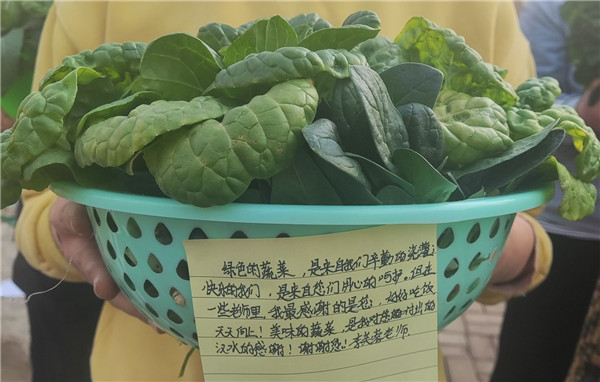 绿色的蔬菜，是来自我们辛勤的浇灌
快乐的我们，是来自您们的呵护。但在
一些老师里，我最感谢的是您，好好吃饭
天天向上！美味的蔬菜，是我对您付出的
汗水的感谢！谢谢您！李老师。